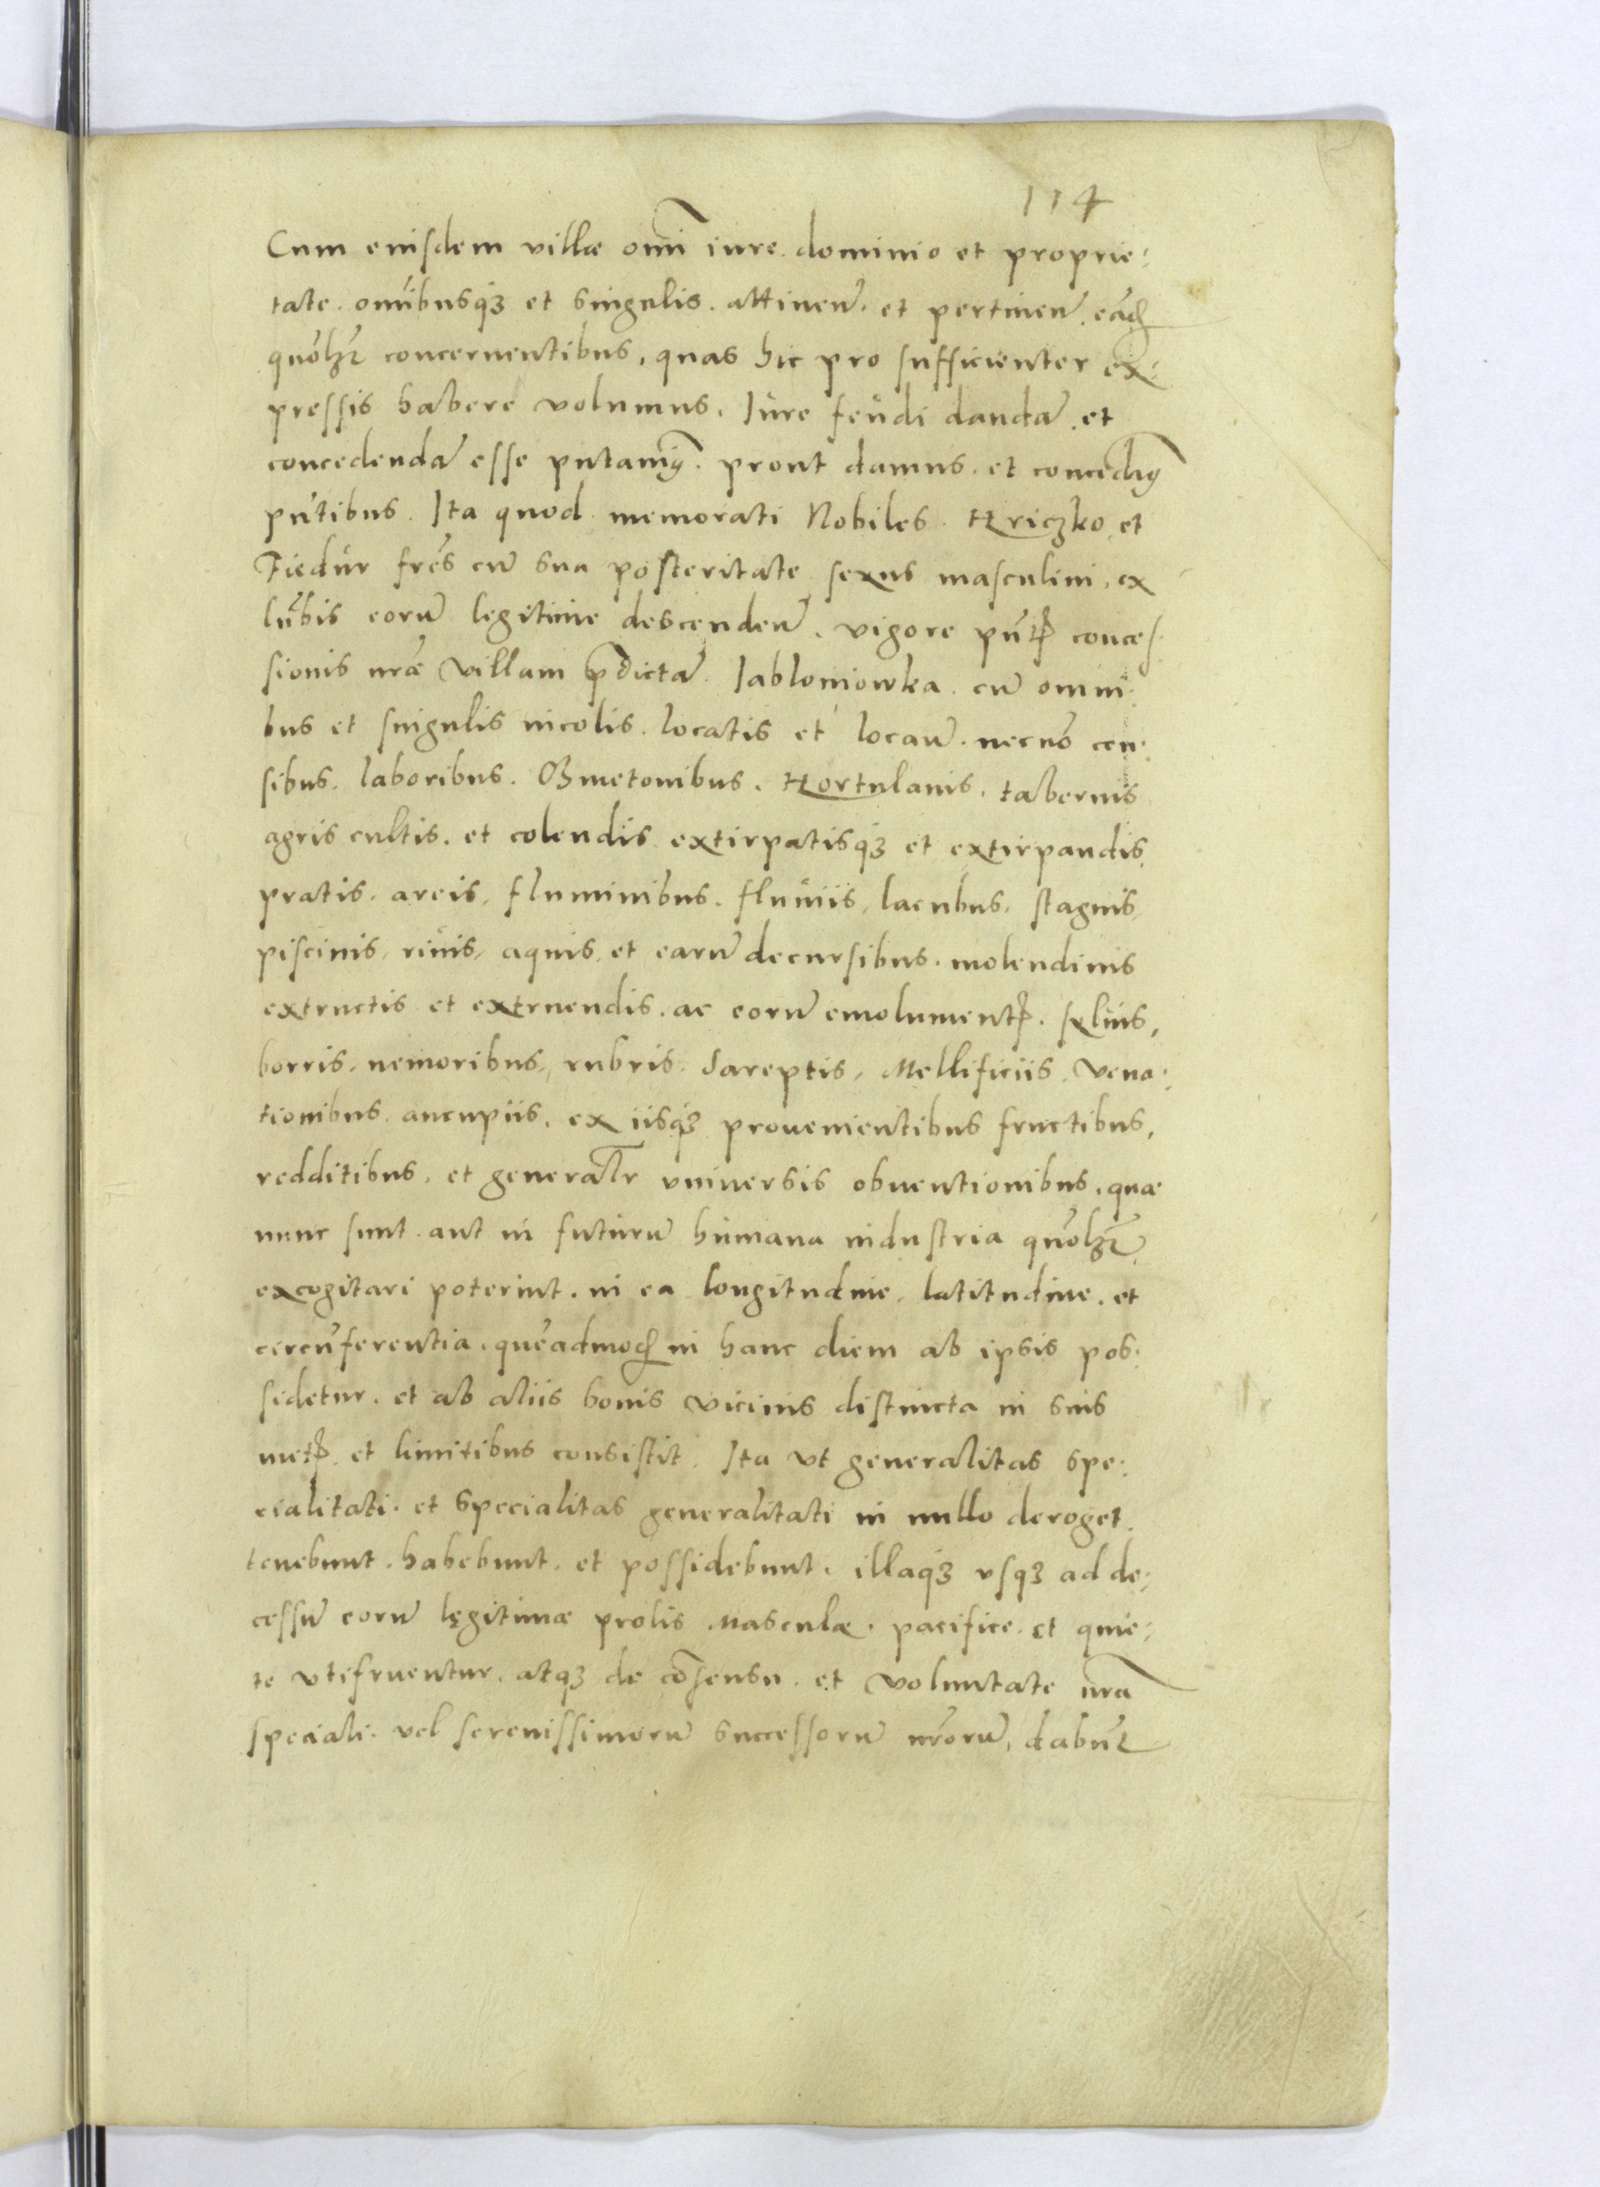 114
Cum eiusdem villæ om̄i iure dominio et proprie:
tate. omībusq3 et singulis. attineñ. et pertineñ. eãd
quõlz concernentibus, quas hic pro sufficienter ex:
pressis habere volumus. Iure feudi dandã et
concedendã esse putauim9. prout damus. et concedim9
pñtibus. Ita quod memorati Nobiles. Hriczko et
Fiedur frẽs cũ sua posteritate sexus masculini, ex
lũbis eorũ legitime descendeñ. vigore pñtis conces
sionis nr̃æ villam p̃dictã Iabloniowka. cũ omni:
bus et singulis incolis. locatis et locañ. necnõ cen:
sibus. laboribus. Cmetonibus. Hortulanis. tabernis
agris cultis. et colendis extirpatisq3 et extirpandis,
pratis. areis, fluminibus. fluuiis, lacubus, stagnis,
piscinis, riuis, aquis et earũ decursibus. molendinis
extructis et extruendis. ac eorũ emolumentis. syluis,
borris, nemoribus, rubris. Sareptis, Mellificiis. vena:
tionibus. aucupiis. ex iisq3 prouenientibus fructibus,
redditibus. et generalr̃ vniuersis obuentionibus, quæ
nunc sunt aut in futurũ humana industria quõlz
excogitari poterint. in ea longitudine, latitudine, et
circũferentia. quẽadmod in hanc diem ab ipsis pos:
sidetur. et ab aliis bonis vicinis distincta in suis
metis et limitibus consistit. Ita vt generalitas spe:
cialitati. et specialitas generalitati in nullo deroget.
tenebunt. habebunt. et possidebunt. illaq3 vsq3 ad de:
cessũ eorũ legitimæ prolis masculæ. pacifice. et quie:
te vtifruentur. atq3 de cõsensu et voluntate nr̃a
speciali. vel serenissimorũ successorũ nr̃orũ, dabũt